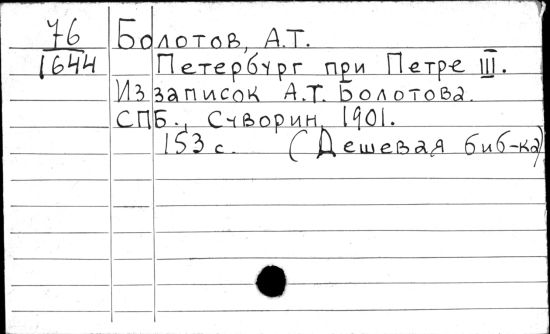 76 Болотов, А.Т.
1644 Петербург при Петре III.
Из записок А.Т. Болотова.
СПБ., Суворин, 1901.
153 с. (Дешевая биб-ка)